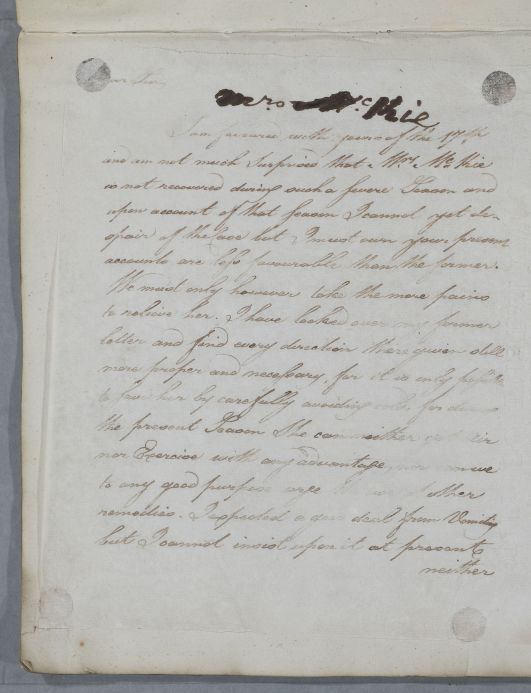 Dear Sir,
Mrs McKie
I am favoured with yours of the 17th
and am not much Surprised that Mrs McKie
is not recovered during such a severe Season and
upon account of that season I cannot yet de-
spair of the Case but I must own your present
accounts are less favourable than the former.
We must only however take the more pains
to relieve her. I have looked over my former
letter and find every direction there given still
more proper and necessary, for it is only
to her by carefully avoiding
the present Season She can neither air
nor Exercise with any advantage, nor can we
to any good purpose urge the use of other
remedies. I expected a great deal from Vomiting
but I cannot insist upon it at present
neither